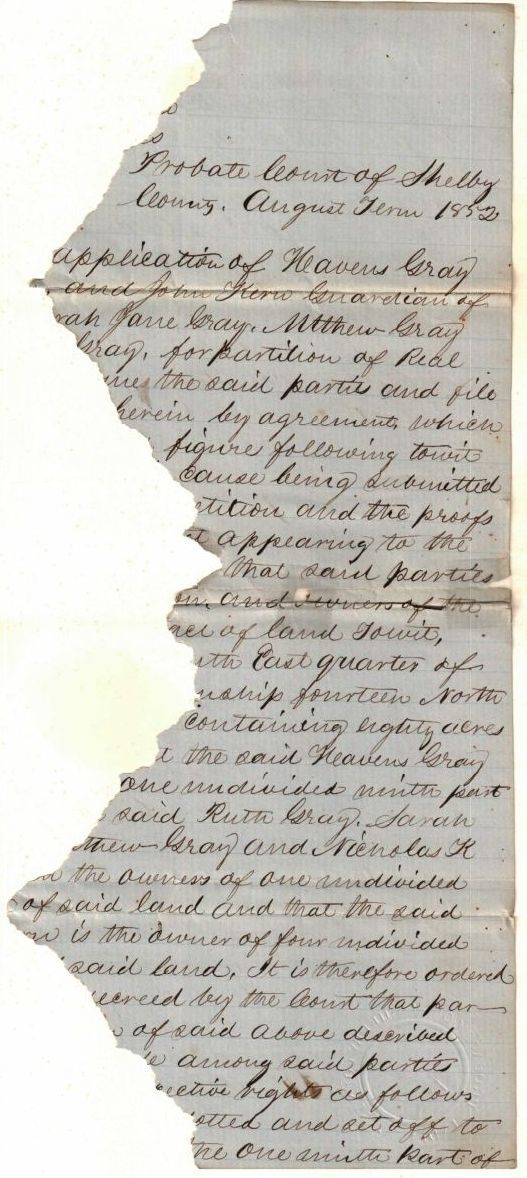 Probate Court of Shelby
County. August Term 1852
application of Heavens Gray
and John Kern Guardian of
rah Jane Gray, Mtthew Gray
Gray, for partition of Real
the said partis and file
herein by agreement, which
figure following towit
cause being submitted
tition and the proofs
t appearing to the
that said parties
and owners of the
cel of land Towit,
uth East quarter of
nship fourteen North
containing eighty acres
t the said Heavens Gray
one undivided ninth part
said Ruth Gray. Sarah
thew Gray and Nicholas K
the owners of one undivided
of said land and that the said
rn is the owner of four undivided
said land. It is therefore ordered
ecreed by the Court that par-
of said above described
among said parties
pective rights as follows
lotted and set off to
the one ninth part of